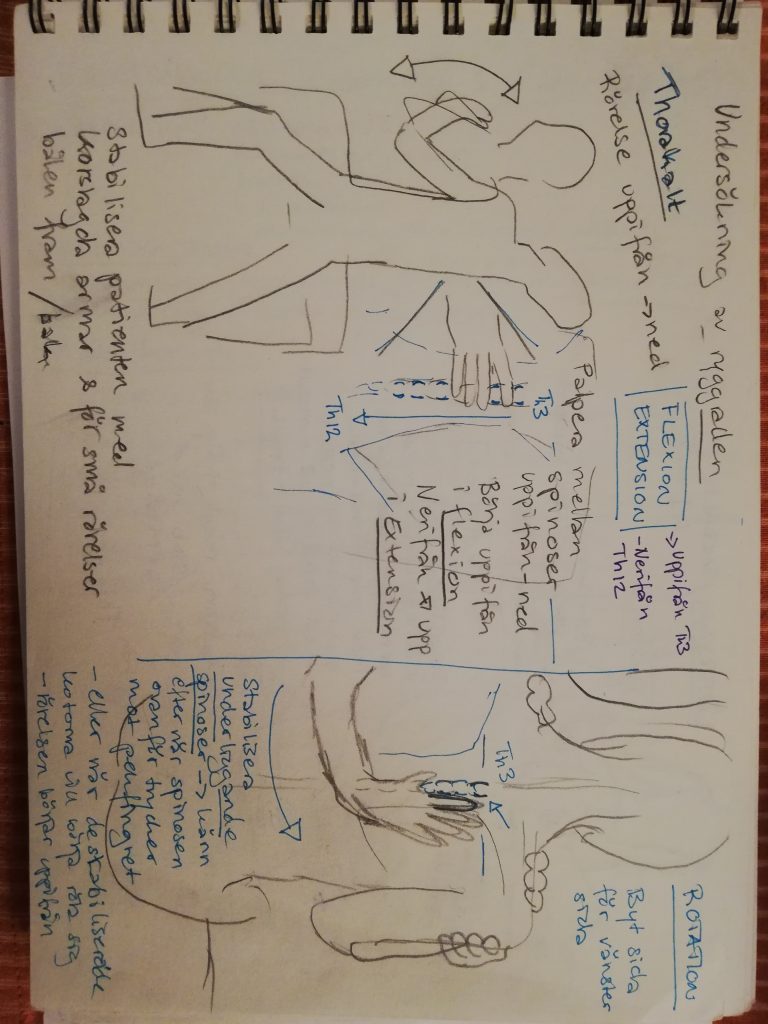 Undersökning av ryggaden
Thorakalt
Rörelse uppifrån → ned
FLEXION → uppifrån Th3
EXTENSION - Nerifrån
Th12
Palpera mellan
spinoser
uppifrån - ned
Börja uppifrån
i flexion
Nerifrån upp
i Extension
Th3
Th12
Stabilisera patienten med
korslagda armar & för små rörelser
bålen fram / bålen
ROTATION
Byt sida
för vänster
sida
Th3
Stabilisera
underliggande
spinoser → känn
efter när spinosen
ovanför trycker
mot pekfingret
- eller när de stabiliserade
kotorna vill börja röra sig
- rörelsen börjar uppifrån